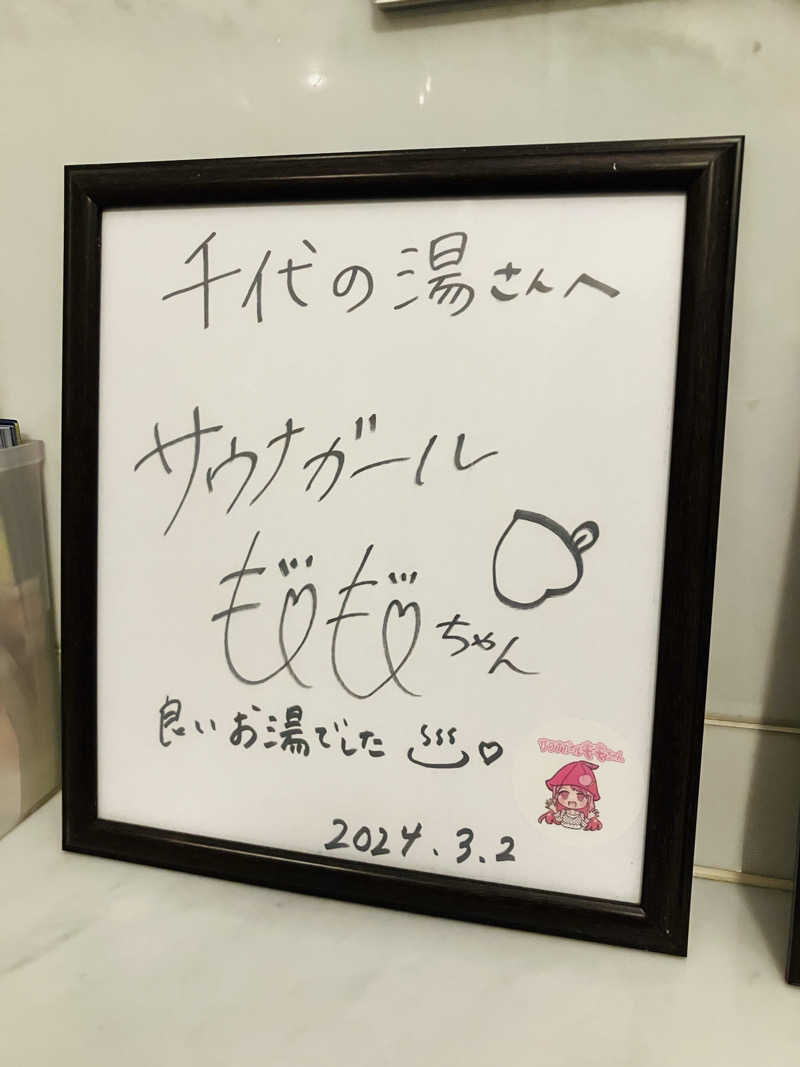 千代の湯さんへ
サウナガール
ももちゃん
良いお湯でした
2024.3.2